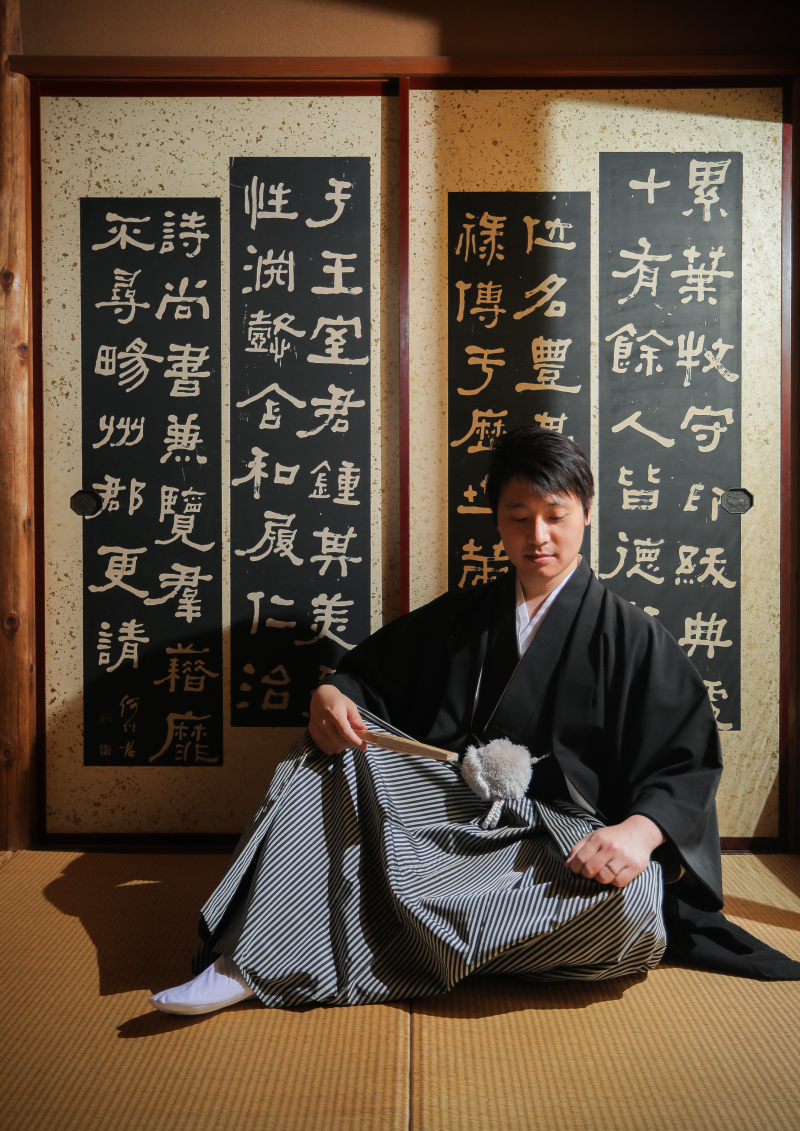 累葉牧守印紱典
十有餘人皆德
位名豐其
祿傳于歷世薦
于王室君鍾其美
性淵懿含和履仁治
詩尚書兼覽羣藉靡
不尋暢州郡更請
何紹基